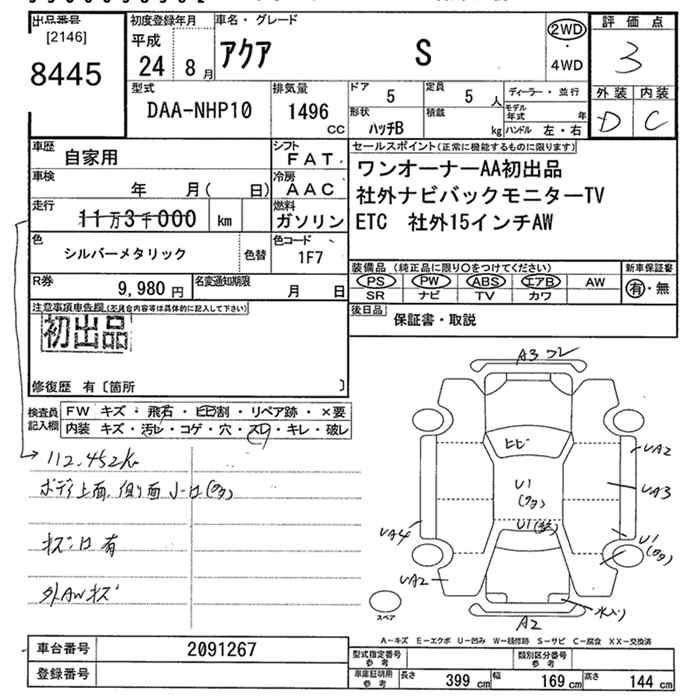 出品番号
[2146]
8445
初度登録年月
平成
24 8月
車名・グレード
アクア S
2WD
・
4WD
評価点
3
外装 内装
D C
型式
DAA-NHP10
排気量
1496
CC
ドア
5
定員
5 人
形状
ハッチB
積載
kg
ディーラー・並行
モデル
年式 年
ハンドル 左・右
車歴
自家用
シフト
FAT
車検
年 月( 日)
冷房
AAC
走行
11万3千000 km
燃料
ガソリン
色
シルバーメタリック
色替
色コード
1F7
R券
9,980円
名変通知期限
月 日
セールスポイント(正常に機能するものに限ります)
ワンオーナーAA初出品
社外ナビバックモニターTV
ETC 社外15インチAW
装備品(純正品に限り○をつけてください)
PS PW ABS エアB AW
SR ナビ TV カワ
新車保証書
有・無
後日品
保証書・取説
注意事項車告欄(不具合内容等は具体的に記入して下さい)
初出品
修復歴 有〔箇所 〕
検査員
記入欄
FW キズ・飛石・ヒビ割・リペア跡・×要
内装 キズ・汚レ・コゲ・穴・スレ・キレ・破レ
112,452K
ボディ上面、側面
キズ 有
外AWキズ
A3
ヒビ
UA2
U1
UA3
U1
UA4
U1
UA2
A2
スペア
A-キズ E-エクボ U-凹み W-補修跡 S-サビ C-腐食 XX-交換済
車台番号
2091267
登録番号
型式指定番号
参考
類別区分番号
参考
車庫証明用
参考
長さ 399 cm 幅 169 cm 高さ 144 cm